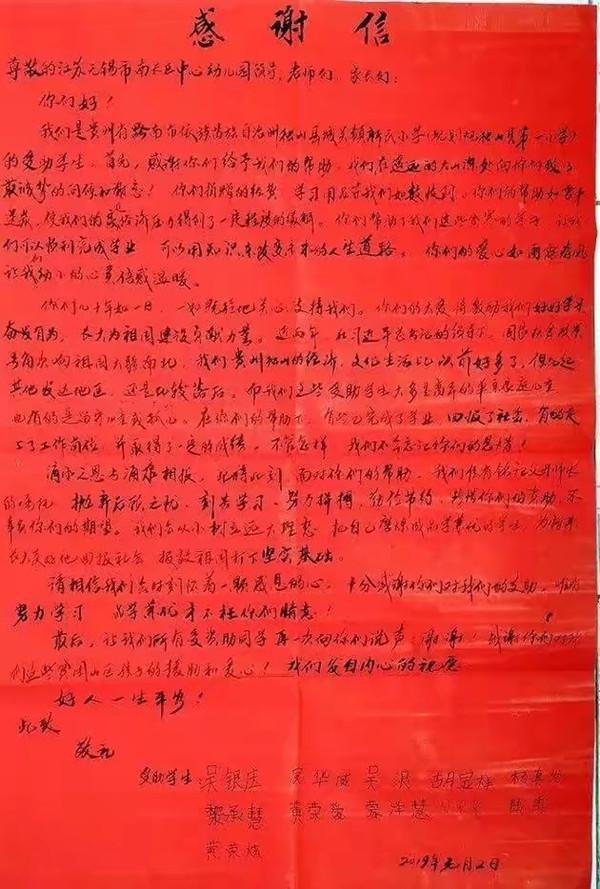 感谢信
尊敬的江苏无锡市南长区中心幼儿园领导、老师们、家长们:
你们好!
我们是贵州省黔南布依族苗族自治州独山县城关镇解民小学(现划规独山县第一小学)
的受助学生,首先,感谢你们给予我们的帮助,我们在遥远的大山深处向你们致以
最诚挚的问候和敬意!你们捐赠的经费、学习用品等我们如数收到。你们的帮助如雪中
送炭,使我们的经济压力得到了一定程度的缓解。你们帮助了我们这些贫寒的学子,让我
们可以顺利完成学业,可以用知识来改变未来的人生道路。你们的爱心如雨露春风
让我们幼小的心灵倍感温暖。
你们几十年如一日,一如既往地关心、支持我们。你们的大爱将激励我们好好学习
奋发有为,长大为祖国建设贡献力量。近两年,在习近平总书记的领导下,国家扶贫政策
号角吹响祖国大江南北,我们贵州独山的经济、文化生活比以前好多了,但比起
其他发达地区,还是比较落后。而我们这些受助学生大多是离异的单亲家庭儿童
也有的是留守儿童或孤儿。在你们的帮助下,有些已完成了学业,回报了社会,有的走
上了工作岗位,并取得了一定的成绩。不管怎样,我们不会忘记你们的恩情!
滴水之恩当涌泉相报,此时此刻,面对你们的帮助,我们唯有铭记父母师长
的嘱托,抛弃后顾之忧,刻苦学习、努力拼搏、勤俭节约,珍惜你们的资助,不
辜负你们的期望。我们会从小树立远大理想,把自己磨炼成品学兼优的学生,为将来
长大更好地回报社会、报效祖国打下坚实基础。
请相信我们会时刻怀着一颗感恩的心,十分感谢你们对我们的支助,唯有
努力学习,品学兼优才不枉你们的情意!
最后,让我们所有受资助同学再一次向你们说声:谢谢!感谢你们对我
们这些贫困山区孩子的援助和爱心!我们发自内心的祝愿
好人一生平安!
此致
敬礼
受助学生 吴银庄 吴华威 吴
黎承慧 黄荣
黄荣
2019年元月2日